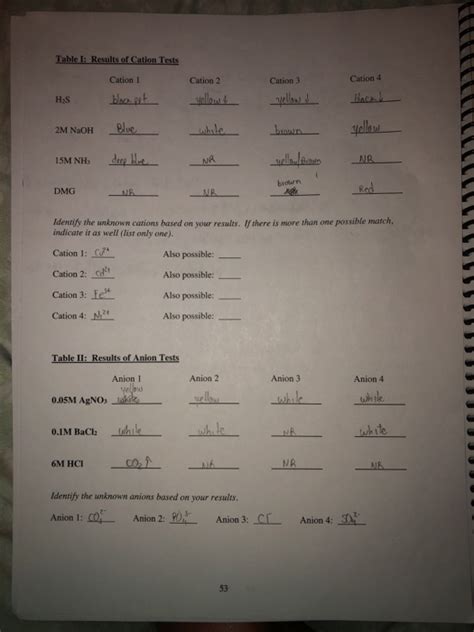 Table I: Results of Cation Tests
Cation 1 Cation 2 Cation 3 Cation 4
H₂S black ppt yellow↓ yellow↓ black↓
2M NaOH Blue white brown yellow
15M NH₃ deep blue NR yellow/Brown NR
DMG NR NR brown Red
Identify the unknown cations based on your results. If there is more than one possible match,
indicate it as well (list only one).
Cation 1: Also possible:
Cation 2: Also possible:
Cation 3: Fe³⁺ Also possible:
Cation 4: Ni²⁺ Also possible:
Table II: Results of Anion Tests
Anion 1 Anion 2 Anion 3 Anion 4
yellow
0.05M AgNO₃ white yellow white white
0.1M BaCl₂ white white NR white
6M HCl CO₂↑ NR NR NR
Identify the unknown anions based on your results.
Anion 1: Anion 2: Anion 3: Cl⁻ Anion 4:
53